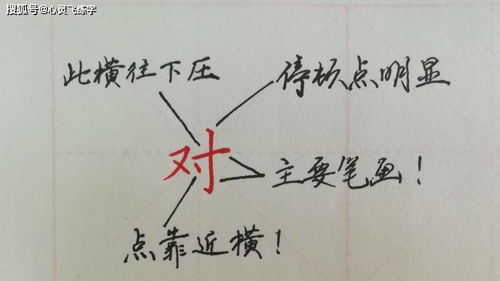 搜狐号@心灵飞练字
此横往下压
停顿点明显
对
主要笔画！
点靠近横！